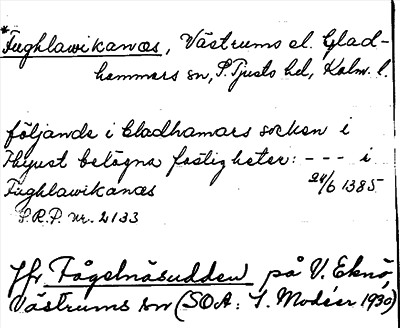 *Fughlawikanæs, Västrums el. Glad-
hammars sn, S. Tjusts hd, Kalm. l.
följande i Gladhamars socken i
Thyust belägna fastigheter: --- i
Fughlawikanæs 24/6 1385
S.R.P. nr. 2133
Jfr Fågelnäsudden på V. Eknö,
Västrums sn (SOA: I. Modéer 1930)